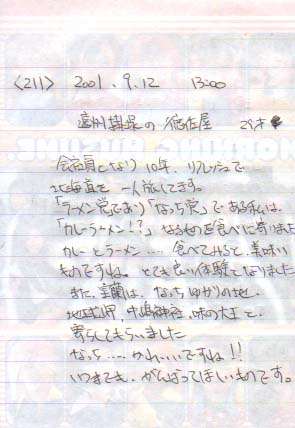 〈211〉 2001.9.12 13:00
遠州 の 徳佐屋 29才
会社員となり10年、リフレッシュで
北海道を一人旅してます。
「ラーメン党であり「なっち党」である私は、
「カレーラーメン!?」なるものを食べに寄りました
カレーとラーメン……食べてみると、美味い
ものですね。とても良い体験となりました
また、室蘭は、なっちゆかりの地。
地球岬、中嶋神社、味の大王と
寄らしてもらいました
なっち……かわいいですね!!
いつまでも、がんばってほしいものです。
MORNING MUSUME.